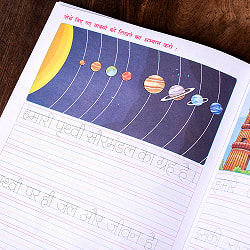 नीचे दिए गए वाक्यों को लिखने का अभ्यास करो :
हमारी पृथ्वी सौरमंडल का ग्रह है ।
पृथ्वी पर ही जल और जीवन है।